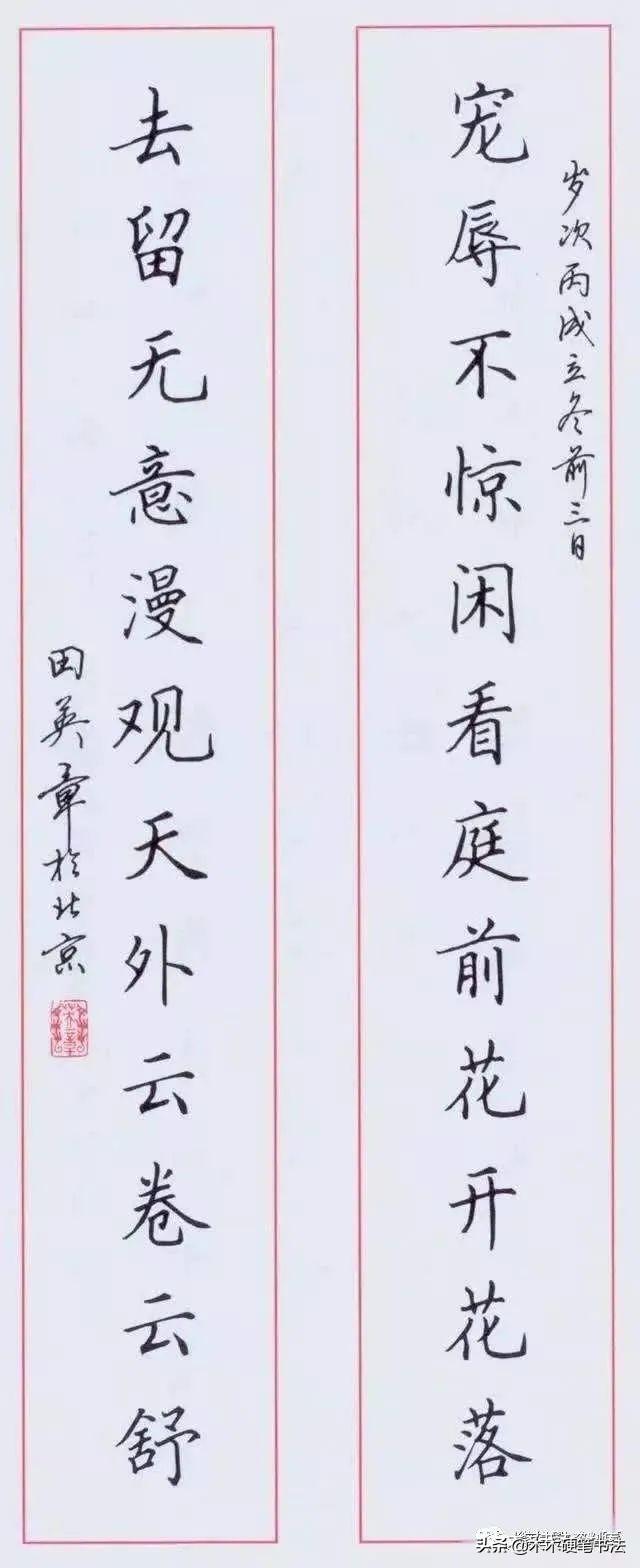 岁次丙戌立冬前三日
宠辱不惊闲看庭前花开花落
去留无意漫观天外云卷云舒
田英章于北京
头条@木木硬笔书法